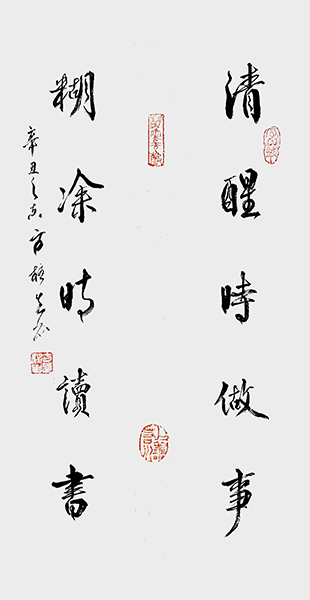 清醒時做事
糊凃時讀書
辛丑之
方